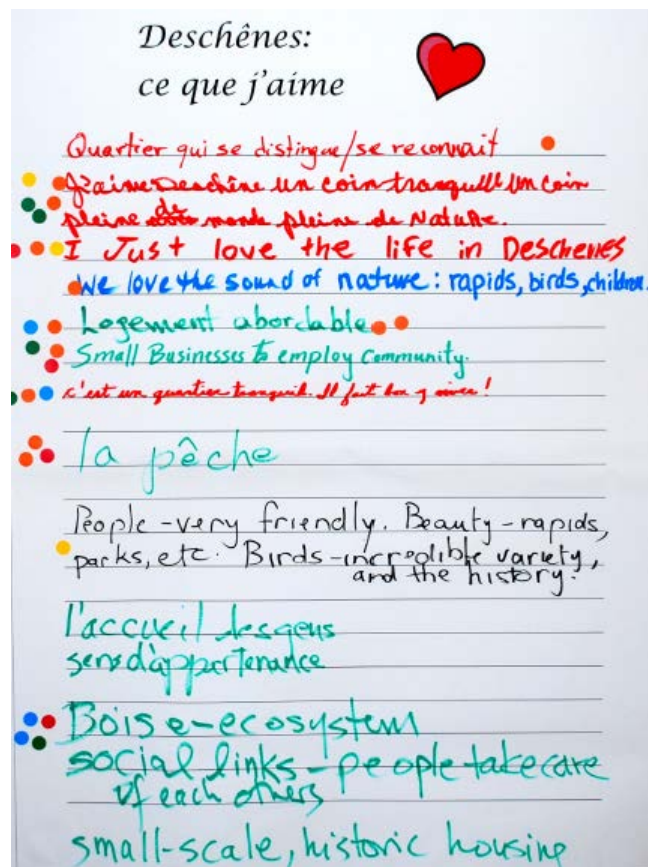 Deschênes:
ce que j'aime
Quartier qui se distingue/se reconnait
J'aime Deschêne un coin tranquille un coin
pleine de monde pleine de Nature.
I Just love the life in Deschenes
We love the sound of nature: rapids, birds, children.
Logement abordable
Small Businesses to employ Community.
c'est un quartier tranquil. Il fait bon y vivre!
la pêche
People - very friendly. Beauty - rapids,
parks, etc. Birds - incredible variety,
and the history.
l'accueil des gens
sens d'appartenance
Boisé - ecosystem
social links - people take care
of each others
small-scale, historic housing